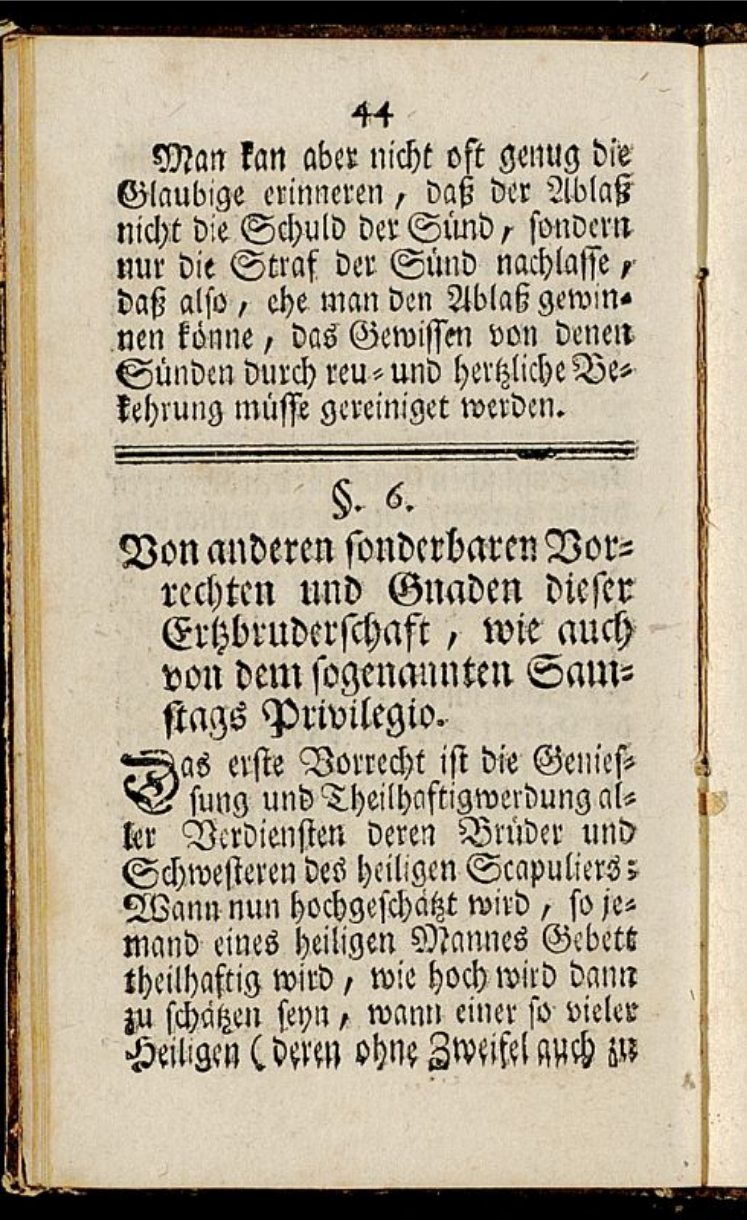 44
Man kan aber nicht oft genug die
Glaubige erinneren, daß der Ablaß
nicht die Schuld der Sünd, sondern
nur die Straf der Sünd nachlasse,
daß also, ehe man den Ablaß gewin-
nen könne, das Gewissen von denen
Sünden durch reu- und hertzliche Be-
kehrung müsse gereiniget werden.
§. 6.
Von anderen sonderbaren Vor-
rechten und Gnaden dieser
Ertzbruderschaft, wie auch
von dem sogenannten Sam-
stags Privilegio.
Das erste Vorrecht ist die Genies-
sung und Theilhaftigwerdung al-
ler Verdiensten deren Brüder und
Schwesteren des heiligen Scapuliers:
Wann nun hochgeschätzt wird, so je-
mand eines heiligen Mannes Gebett
theilhaftig wird, wie hoch wird dann
zu schätzen seyn, wann einer so vieler
Heiligen (deren ohne Zweifel auch zu